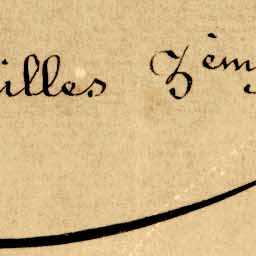 illes 3èm